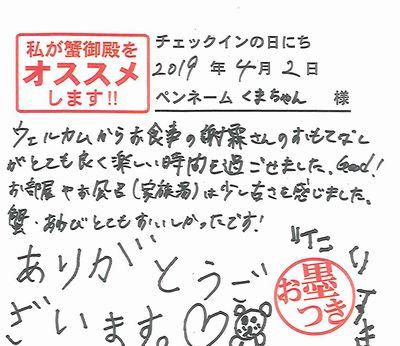 私が蟹御殿を
オススメ
します!!
チェックインの日にち
2019 年 4 月 2 日
ペンネーム くまちゃん 様
ウェルカムからお食事の謝霖さんのおもてなし
がとても良く楽しい時間を過ごせました。Good!
お部屋やお風呂(家族湯)は少し古さを感じました。
蟹・あわびとてもおいしかったです!
ありがとうご
ざいます。♡
お墨
つき